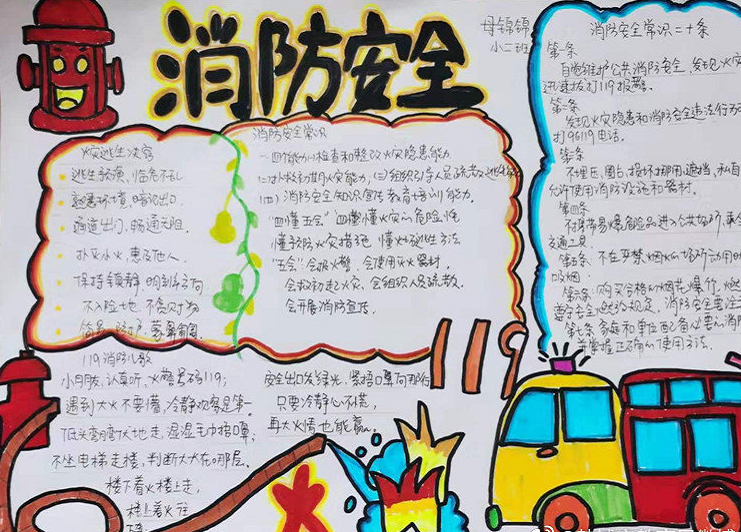 消防安全
母锦锦
小二班
火灾逃生决窍
逃生预演，临危不乱
熟悉环境，暗记出口
通道出门，畅通无阻
扑灭小火，惠及他人
保持镇静 明到方向
不入险地 不贪财物
简易防护，蒙鼻匍匐
消防安全常识
一四个能力(一)检查和整改火灾隐患能力
(二)扑救初期火灾能力；(三)组织引导人员疏散逃生能
(四)消防安全知识宣传教育培训能力。
"四懂五会"四懂懂火灾的危险性
懂预防火灾措施 懂火场逃生方法
"五会"会报火警 会使用灭火器材
会扑救初起火灾、会组织人员疏散
会开展消防宣传
消防安全常识二十条
第一条
自觉维护公共消防安全，发现火灾
迅速拨打119报警。
第二条
发现火灾隐患和消防安全违法行
打96119电话。
第三条
不埋压、圈占、损坏、挪用、遮挡、私自
允许使用消防设施和器材。
第四条
不携带易燃易爆危险品进入公共场所、乘坐
交通工具
第五条：不在严禁烟火的场所动用明
吸烟。
第六条：购买合格的烟花爆竹，燃
遵守安全燃放规定，消防安全要注
第七条：家庭和单位配备必要的消防
并掌握正确的使用方法。
119消防儿歌
小朋友，认真听，火警号码119；
遇到大火不要慌，冷静观察是第一。
低头弯腰伏地走，湿湿毛巾捂口鼻；
不坐电梯走楼，判断大火在哪层。
楼下着火楼上走，
楼上着火往
安全出口发绿光，紧捂口鼻向那行
只要冷静心不慌，
再大火情也能赢。
119
火